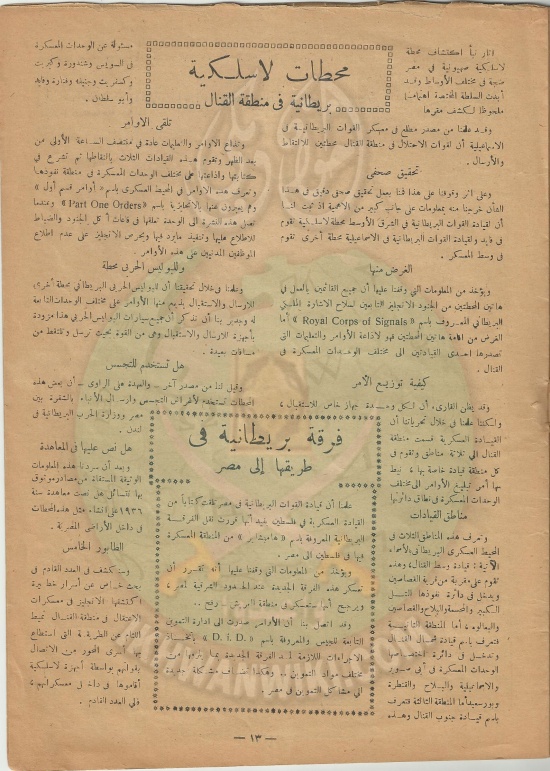 محطات لاسلكية
بريطانية فى منطقة القنال
اثار نبأ اكتشاف محطة
لاسلكية صهيونية فى مصر
ضجة فى مختلف الأوساط وقد
أبدت السلطة المختصة اهتماما
ملحوظا لكشف مقرها
وقد علمنا من مصدر مطلع فى معسكر القوات البريطانية فى
الاسماعيلية أن لقوات الاحتلال فى منطقة القنال محطتين للالتقاط
والأرسال .
تحقيق صحفى
وعلى اثر وقوفنا على هذا قمنا بعمل تحقيق صحفى دقيق فى هذا
الشأن خرجنا منه بمعلومات على جانب كبير من الاهمية
أن لقيادة القوات البريطانية فى الشرق الأوسط محطة لاسلكية تقوم
فى فايد ولقيادة القوات البريطانية فى الاسماعيلية محطة أخرى تقوم
فى وسط المعسكر .
الغرض منها
ويؤخذ من المعلومات التى وقفنا عليها أن جميع القائمين بالعمل فى
هاتين المحطتين من الجنود الانجليز التابعين لسلاح الاشارة الملكى
البريطانى المعروف باسم « Royal Corps of Signals » أما
الغرض من اقامة هاتين المحطتين فهو لاذاعة الأوامر والتعليمات التى
تصدرها احدى القيادتين الى مختلف الوحدات العسكرية فى
القنال .
كيفية توزيع الأمر
وقد يظن القارىء أن لكل وحدة جهاز خاص للاستقبال ،
ولكننا علمنا فى خلال تحرياتنا أن
القيادة العسكرية قسمت منطقة
القنال الى ثلاثة مناطق وتقوم فى
كل منطقة قيادة خاصة بها ، نيط
بها أمر تبليغ الأوامر الى مختلف
الوحدات العسكرية فى نطاق دائرتها
مناطق القيادات
وتعرف هذه المناطق الثلاث فى
المحيط العسكرى البريطانى بالأسماء
الآتية : قيادة وسط القنال ، وهذه
تقوم على مقربة من قرية القصاصين
ويدخل فى دائرة نفوذها التـل
الكبير والمحسمة والبلاح والقصاصين
والمعالوه ، أما المنطقة الثانيـة
فتعرف باسم قيادة شمال القنال
وتدخل فى دائرة اختصاصها
الوحدات العسكرية فى أبى صوير
والاسماعيلية والبلاح والقنطرة
وبورسعيد أما المنطقة الثالثة فتعرف
باسم قيادة جنوب القنال وهذه
مسئولة عن الوحدات العسكرية
فى السويس وشندورة وكبريت
وكسفريت وجنيفه وفنارة وفايد
وأبو سلطان .
تلقى الاوامر
وتذاع الاوامر والتعليمات عادة فى منتصف الساعة الأولى من
بعد الظهر وتقوم هذه القيادات الثلاث بالتقاطها ثم تشرع فى
كتابتها واذاعتها على مختلف الوحدات العسكرية فى منطقة نفوذها
وتعرف هذه الاوامر فى المحيط العسكرى باسم « أوامر قسم أول »
وهم يعبرون عنها بالانجليزية باسم «Part One Orders» وعندما
تصل هذه النشرة الى الوحدة تعلقها فى قاعات أكل الجنود والضباط
للاطلاع عليها وتنفيذ ماورد فيها ويحرص الانجليز على عدم اطلاع
الموظفين المدنيين على هذه الأوامر
وللبوليس الحربى محطة
وعلمنا فى خلال تحقيقاتنا أن للبوليس الحربى البريطانى محطة أخرى
للارسال والاستقبال يذيع منها الأوامر على مختلف الوحدات التابعة
له وجدير بنا أن نذكر أن جميع سيارات البوليس الحربى هذا مزودة
بأجهزة للارسال والاستقبال وهى من القوة بحيث ترسل وتلتقط من
مسافات بعيدة .
هل تستخدم للتجسس
وقيل لنا من مصدر آخر — والعهدة على الراوى — أن بعض هذه
المحطات تستخدم لأغراض التجسس وارسال الأنباء بالشفرة بين
مصر ووزارة الحرب البريطانية فى
لندن .
هل نص عليها فى المعاهدة
وبعد أن سردنا هذه المعلومات
الوثيقة المستقاة من مصادر موثوق
بها نتسائل هل نصت معاهدة سنة
١٩٣٦ على انشاء مثل هذه المحطات
فى داخل الأراضى المصرية .
الطابور الخامس
وسنكشف فى العدد القادم فى
بحث خاص عن أسرار خطيرة
اكتشفها الانجليز فى معسكرات
الاعتقال فى منطقة القنال تميط
اللثام عن الطريقة التى استطاع
بها أسرى المحور من الاتصال
بقوائهم بواسطة أجهزة لاسلكية
أقاموها فى داخل معسكراتهم ،
فالى العدد القادم .
فرقة بريطانية فى
طريقها إلى مصر
علمنا أن قيادة القوات البريطانية فى مصر تلقت كتاباً من
القيادة العسكرية فى فلسطين تفيد أنها قررت نقل الفرقة
البريطانية المعروفة باسم « هامبشاير » من المنطقة العسكرية
فيها فى فلسطين الى مصر .
ويؤخذ من المعلومات التى وقفنا عليها أنه تقرر أن
تعسكر هذه الفرقة الجديدة عند الحدود الشرقية لمصر ،
ويرجح أنها ستعسكر فى منطقة العريش - رفح ..
وقد اتصل بنا أن الأوامر صدرت الى ادارة التموين
التابعة للجيش والمعروفة باسم «D.i.D.» باتخاذ
الاجراءات اللازمة لمد الفرقة الجديدة بما يلزمها من
مختلف مواد التموين .. وهكذا تضاف مشكلة جديدة
الى مشاكل التموين فى مصر .
— ١٣ —